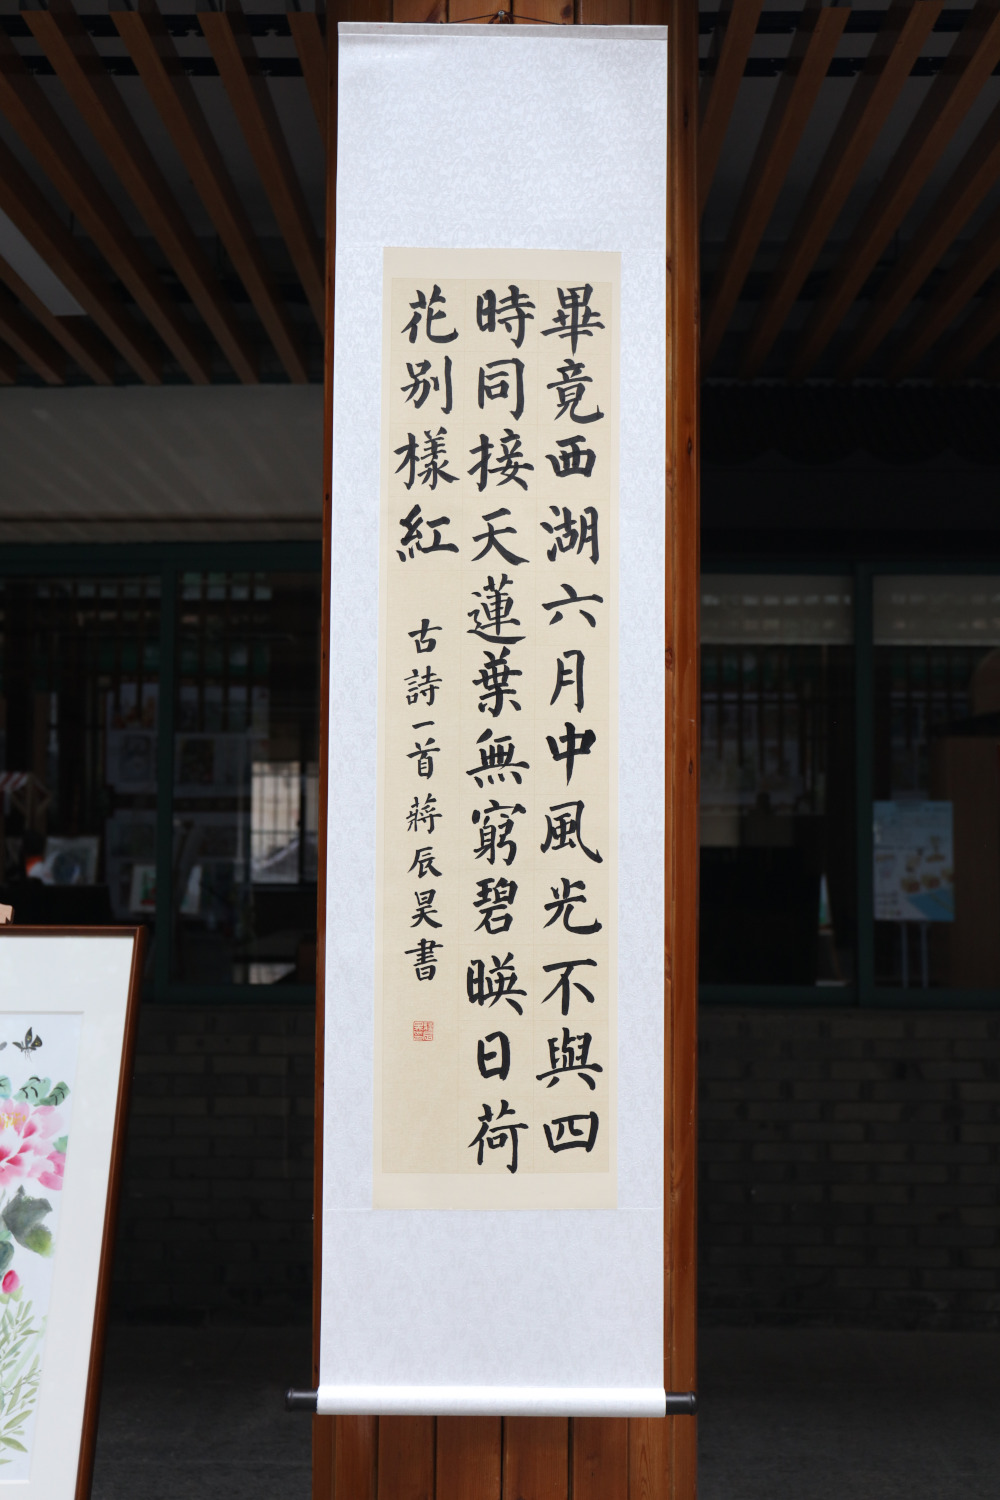 畢竟西湖六月中風光不與四
時同接天蓮葉無窮碧暎日荷
花别樣紅
古詩一首蔣辰昊書